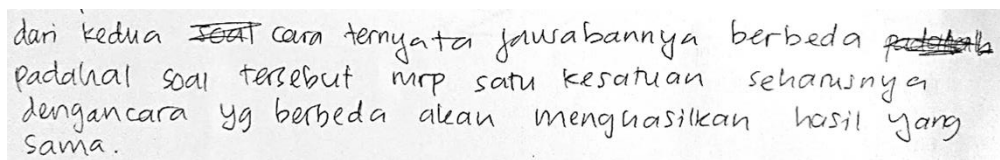 dari kedua soal cara ternyata jawabannya berbeda padahal
padahal soal tersebut mrp satu kesatuan seharusnya
dengan cara yg berbeda akan menghasilkan hasil yang
sama.